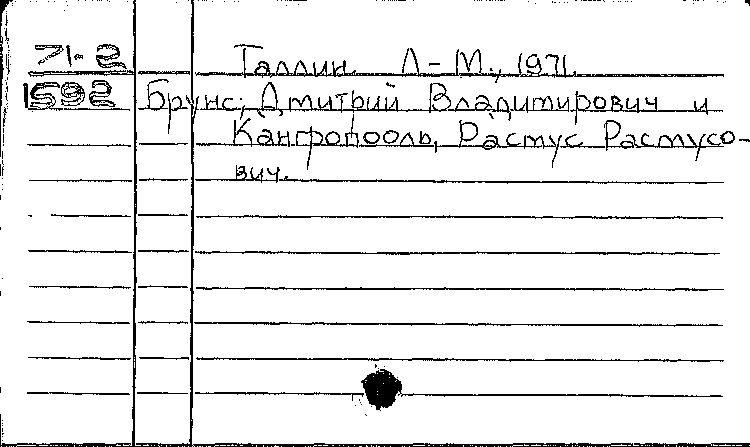 71-2 Таллин. Л-М., 1971.
1592 Брунс, Дмитрий Владимирович и
Кангропооль, Растус Растусо-
вич.